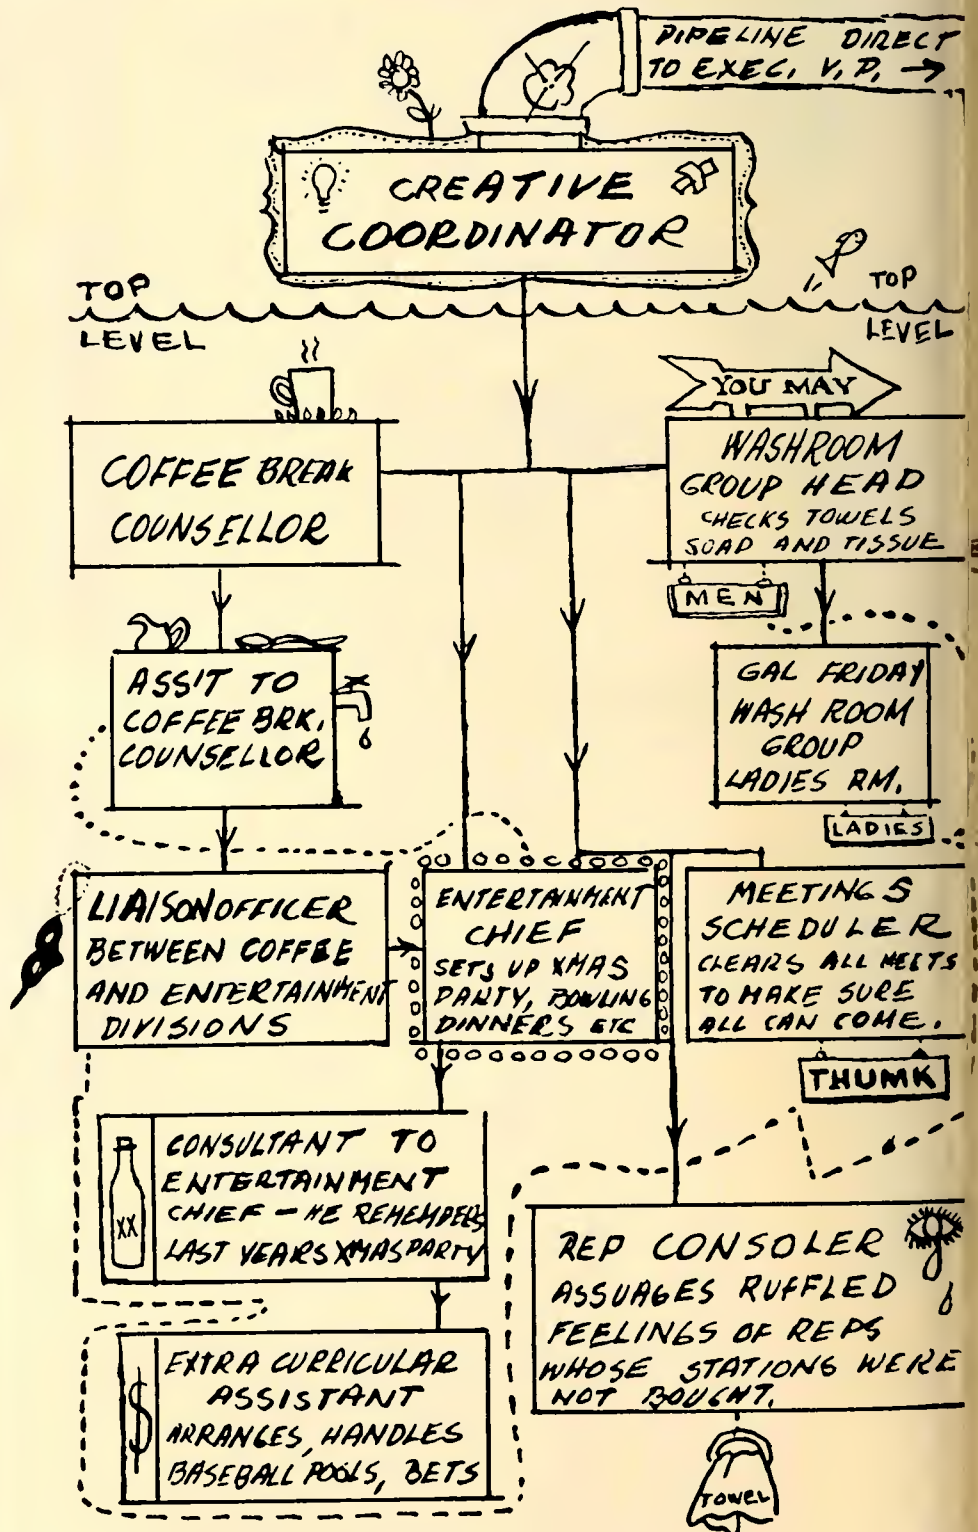 PIPELINE DIRECT
TO EXEC. V.P. →
CREATIVE
COORDINATOR
TOP
LEVEL
TOP
LEVEL
COFFEE BREAK
COUNSELLOR
YOU MAY
WASHROOM
GROUP HEAD
CHECKS TOWELS
SOAP AND TISSUE
MEN
ASS'T TO
COFFEE BRK.
COUNSELLOR
GAL FRIDAY
WASH ROOM
GROUP
LADIES RM.
LADIES
LIAISON OFFICER
BETWEEN COFFEE
AND ENTERTAINMENT
DIVISIONS
ENTERTAINMENT
CHIEF
SETS UP XMAS
PARTY, BOWLING
DINNERS ETC
MEETINGS
SCHEDULER
CLEARS ALL MEETS
TO MAKE SURE
ALL CAN COME.
THUMK
XX
CONSULTANT TO
ENTERTAINMENT
CHIEF — HE REMEMBERS
LAST YEARS XMAS PARTY
REP CONSOLER
ASSUAGES RUFFLED
FEELINGS OF REPS
WHOSE STATIONS WERE
NOT BOUGHT.
$
EXTRA CURRICULAR
ASSISTANT
ARRANGES, HANDLES
BASEBALL POOLS, BETS
TOWEL